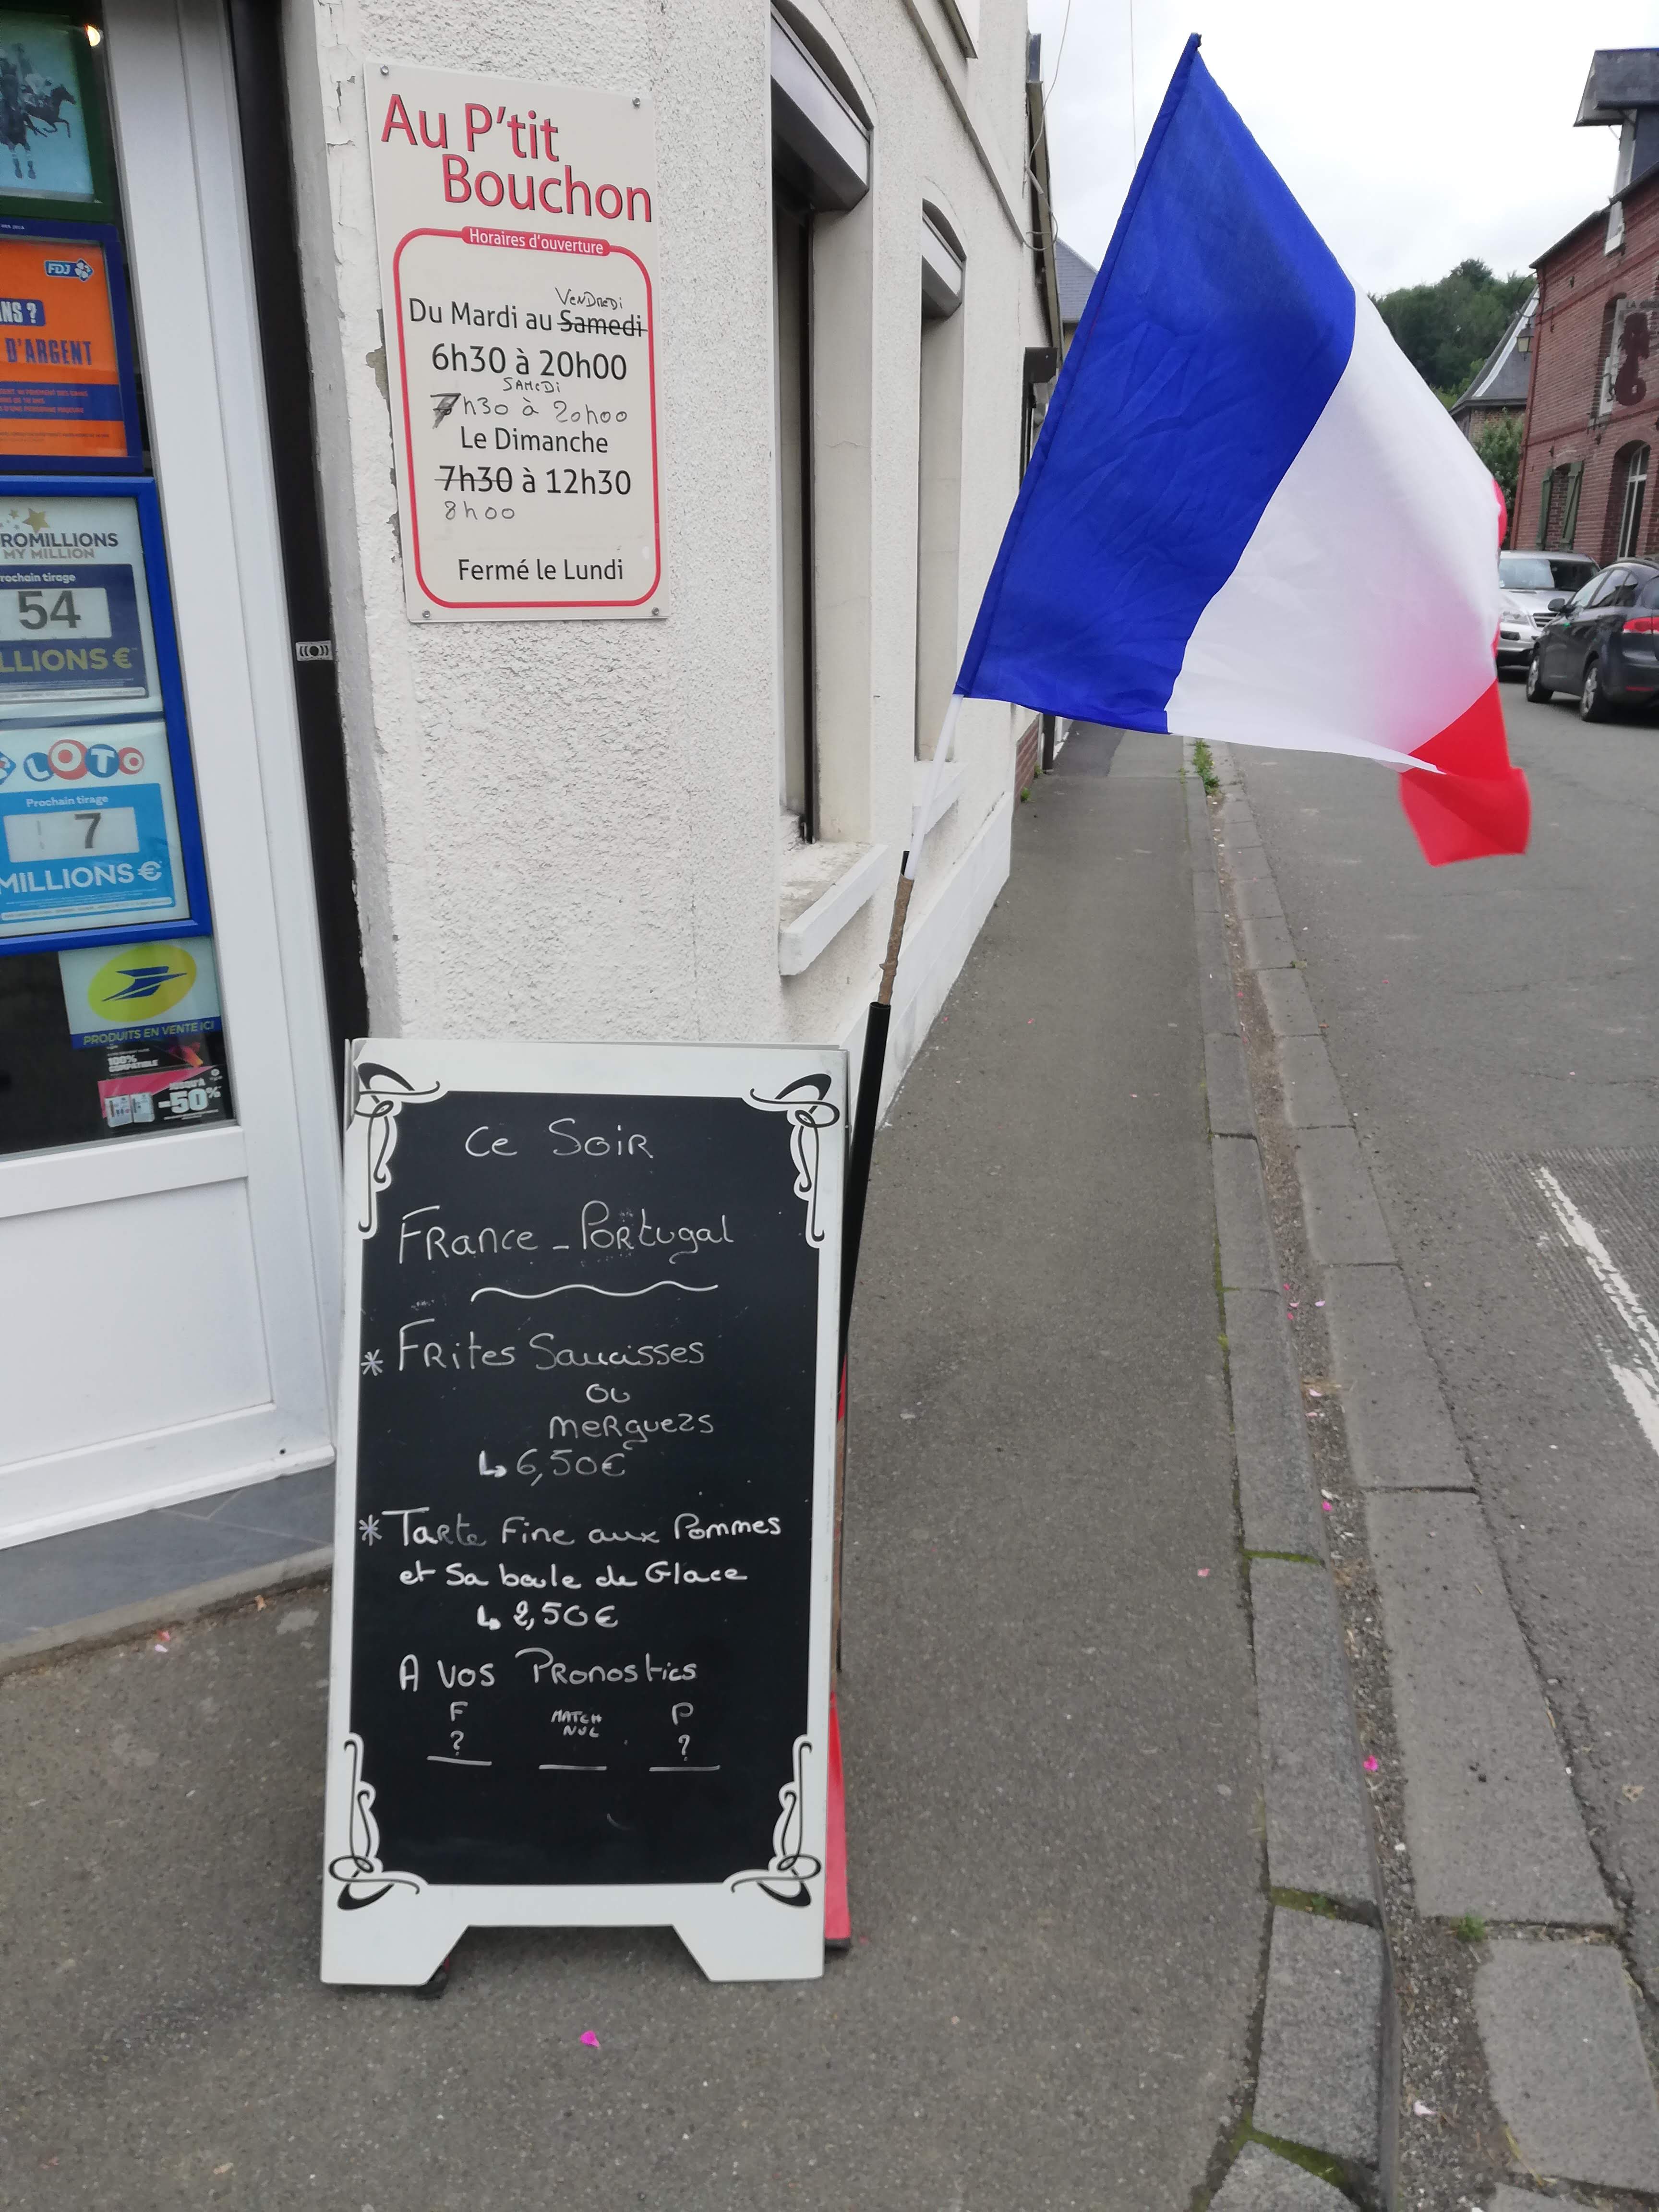 Au P'tit
Bouchon
Horaires d'ouverture
VENDREDI
Du Mardi au Samedi
6h30 à 20h00
SAMEDI
7h30 à 20h00
Le Dimanche
7h30 à 12h30
8h00
Fermé le Lundi
FDJ
ANS ?
D'ARGENT
ROMILLIONS
MY MILLION
rochain tirage
54
LLIONS €
LOTO
Prochain tirage
7
MILLIONS €
PRODUITS EN VENTE ICI
100%
COMPATIBLE
JUSQU'À
-50%
Ce Soir
France - Portugal
* Frites Saucisses
ou
merguezs
↳ 6,50€
* Tarte Fine aux Pommes
et Sa boule de Glace
↳ 2,50€
A vos Pronostics
F MATCH P
? NUL ?